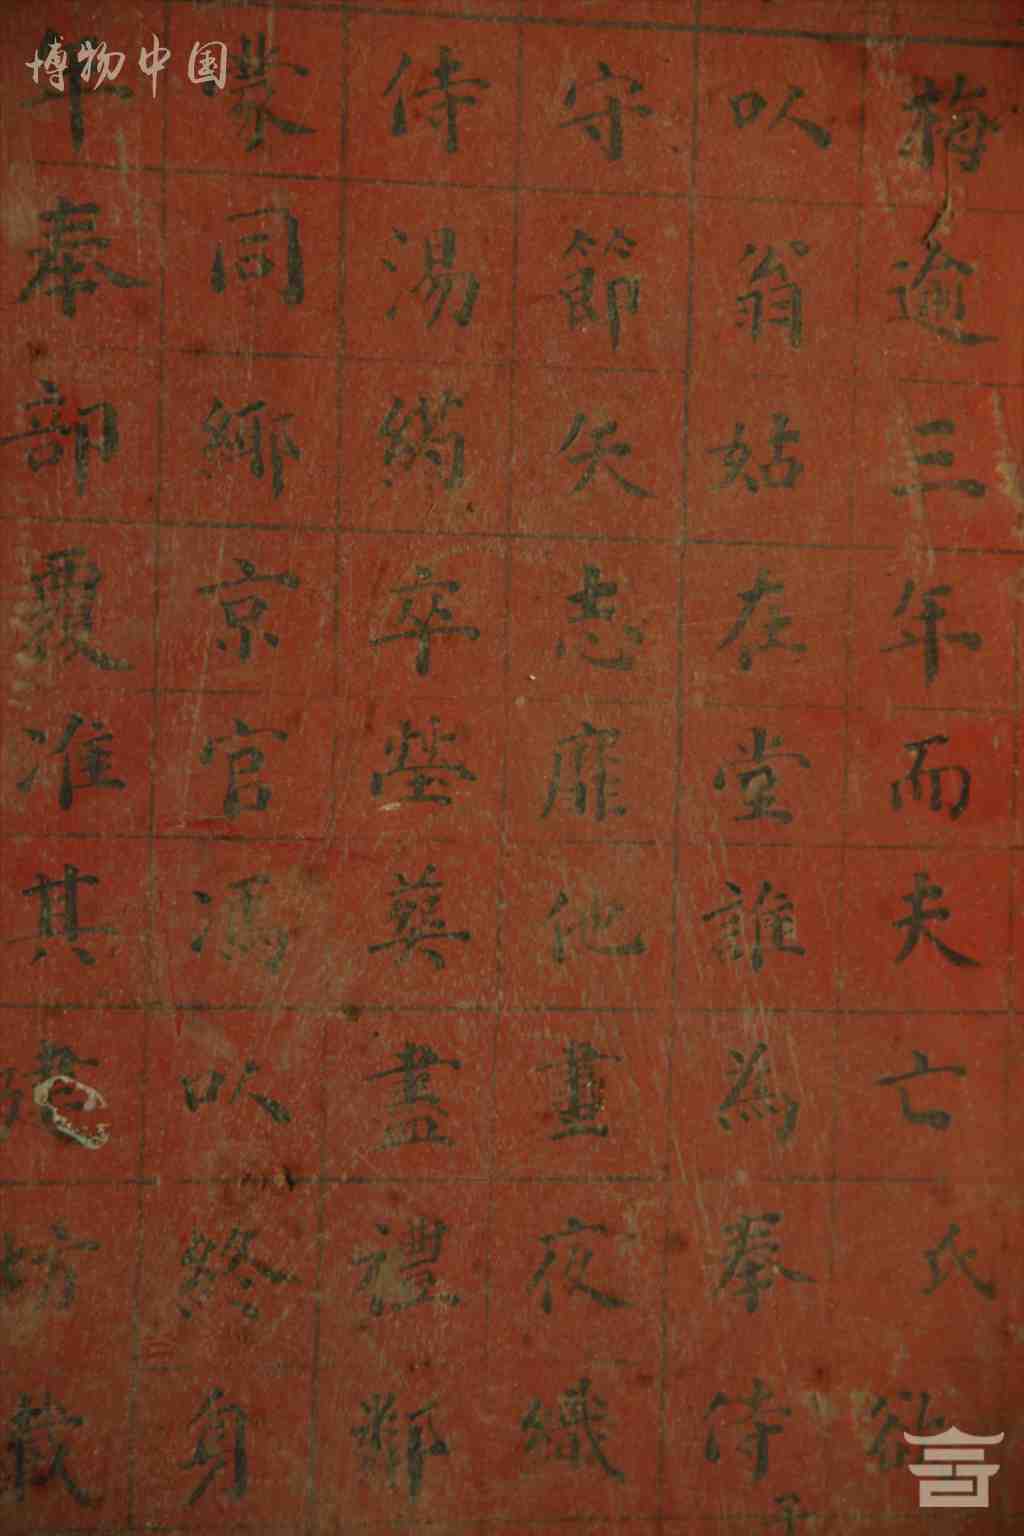 梅逾三年而夫亡氏欲
以翁姑在堂誰為奉侍
守節矢志靡他晝夜織
侍湯卒塋葬盡禮鄰
蒙同鄉京官馮以終身
年奉部覆准其建坊
博物中国